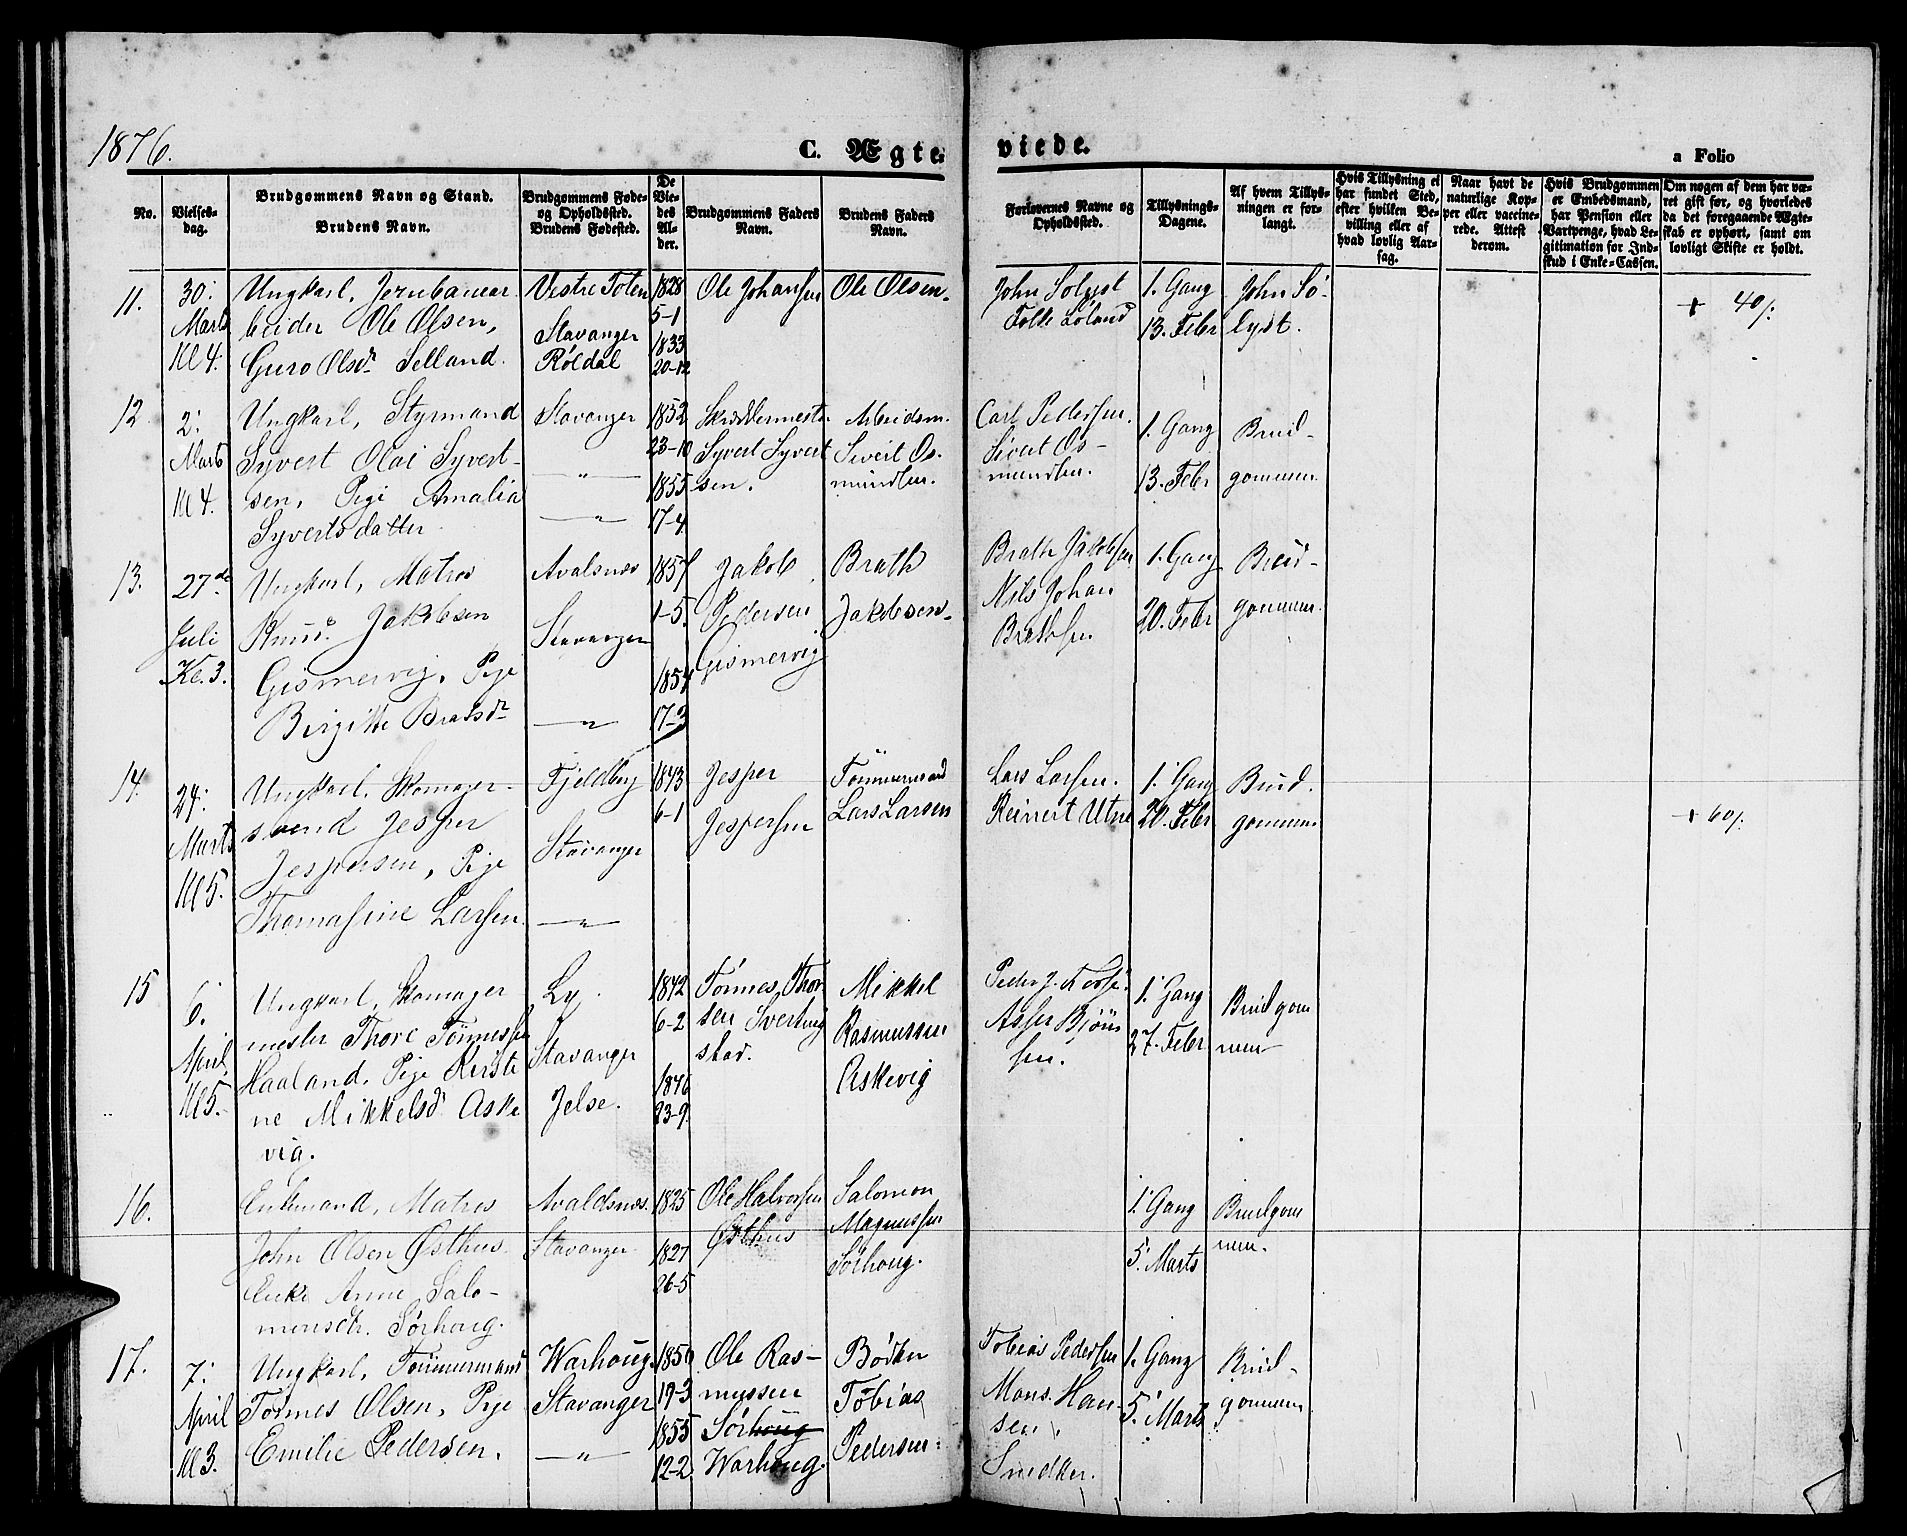 1876.
C. Ægte
viede.
a Folio
No.
Vielses-
dag.
Brudgommens Navn og Stand.
Brudens Navn.
Brudgommens Føde-
og Opholdssted.
Brudens Fødested.
De
Vie-
des
Al-
der.
Brudgommens Faders
Navn.
Brudens Faders
Navn.
Forlovernes Navne og
Opholdssted.
Tillysnings-
Dagene.
Af hvem Tillys-
ningen er for-
langt.
Hvis Tillysning ei
har fundet Sted,
efter hvilken Be-
villing eller af
hvad lovlig Aar-
sag.
Naar havt de
naturlige Kop-
per eller vaccine-
rede. Attest
derom.
Hvis Brudgommen
er Embedsmand,
har Pension eller
Vartpenge, hvad Le-
gitimation for Ind-
skud i Enke-Cassen.
Om nogen af dem har væ-
ret gift før, og hvorledes
da det foregaaende Ægte-
skab er ophørt, samt om
lovligt Skifte er holdt.
11.
30.
Marts
Kl 4.
Ungkarl, Jernbanear
beider Ole Olsen,
Guro Olsdr Selland.
Vestre Toten
Stavanger
Røldal
1828
5-1
1833
20-12
Ole Johansen
Ole Olsen.
John Solyst
Folke Løland
1. Gang
13. Febr
John So-
lyst.
+ 40/.
12
2.
Marts
Kl 4.
Ungkarl, Styrmand
Syvert Olai Syvert-
sen, Pige Amalia
Syvertsdatter
Stavanger
—"—
—"—
1852
23-10
1855
17-4
Skræddermester
Syvert Syvert
sen.
Arbeidsm.
Sivert Os-
mundsen.
Carl Pedersen.
Sivert Os-
mundsen.
1. Gang
13. Febr
Brud-
gommen
13.
27de
Juli
Kl. 3.
Ungkarl, Matros
Knud Jakobsen
Gismervig, Pige
Birgitte Bratsdr
Avalsnes
Stavanger
—"—
1857
1-5.
1854
17-3
Jakob
Pedersen
Gismervig
Brath
Jakobsen.
Brath Jakobsen
Nils Johan
Brathsen
1. Gang
20. Febr
Brud-
gommen.
14.
24.
Marts
Kl 5.
Ungkarl, Skomager-
svend Jesper
Jespersen, Pige
Thomasine Larsen
Fjeldberg
Stavanger
—"—
1843
6-1
Jesper
Jespersen
Tømmermand
Lars Larsen
Lars Larsen.
Reinert Utne
1. Gang
20. Febr
Brud.
gommen
+ 60/.
15
6.
April
Kl 5.
Ungkarl, Skomager
mester Thore Tønnessen
Haaland, Pige Kirsti
ne Mikkelsd. Aske
vig.
Ly
Stavanger
Jelse.
1842
6-2
1846
23-9
Tønnes Thor
sen Sverting
stad.
Mikkel
Rasmussen
Askevig
Peder J.
Asser Bjørn
sen.
1. Gang
27. Febr
Brudgom
men
16.
Enkemand, Matros
John Olsen Østhus
Enke Anne Salo-
monsdtr. Sørhoug.
Avaldsnes.
Stavanger
1825
1827
26-5
Ole Halvorsen
Østhus
Salomon
Magnussen
Sørhoug.
1. Gang
5. Marts
Brudgom
men.
17.
7.
April
Kl 3.
Ungkarl, Tømmermand
Tønnes Olsen, Pige
Emilie Pedersen.
Warhoug.
Stavanger
—"—
1850
19-3
1855
12-2
Ole Ras-
mussen
Sørhoug
Warhoug.
Bødker
Tobias
Pedersen.
Tobias Pedersen
Mons. Han
sen,
Snedker.
1. Gang
5. Marts
Brud-
gommen